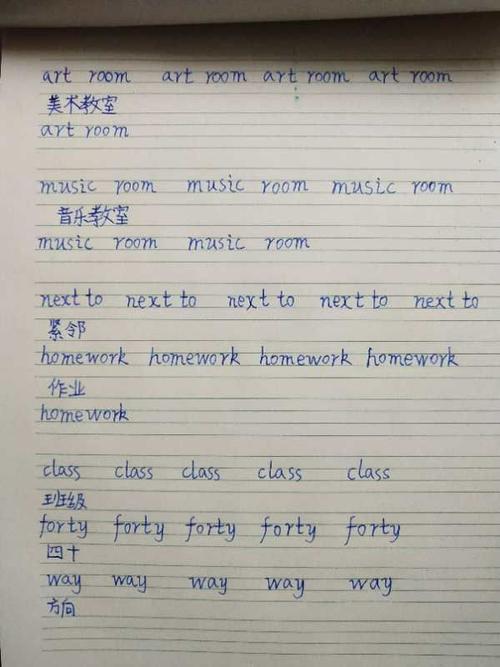 art room art room art room art room
美术教室
art room
music room music room music room
音乐教室
music room music room
next to next to next to next to next to
紧邻
homework homework homework homework
作业
homework
class class class class class
班级
forty forty forty forty forty
四十
way way way way way
方向